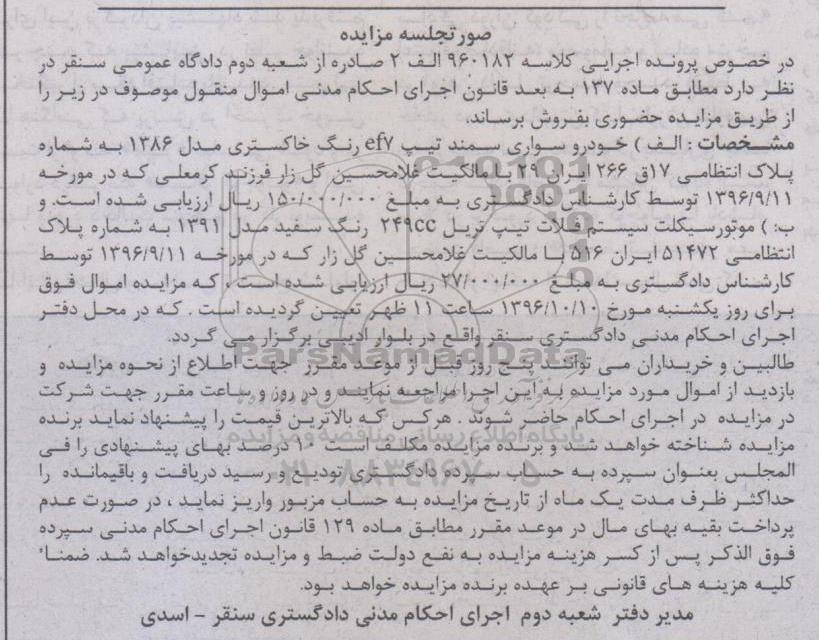 صورتجلسه مزایده
در خصوص پرونده اجرایی کلاسه ۹۶۰۱۸۲ الف ۲ صادره از شعبه دوم دادگاه عمومی سنقر در
نظر دارد مطابق ماده ۱۳۷ به بعد قانون اجرای احکام مدنی اموال منقول موصوف در زیر را
از طریق مزایده حضوری بفروش برساند.
مشخصات : الف ) خودرو سواری سمند تیپ ef۷ رنگ خاکستری مدل ۱۳۸۶ به شماره
پلاک انتظامی ۱۷ق ۲۶۶ ایران ۲۹ با مالکیت غلامحسین گل زار فرزند کرمعلی که در مورخه
۱۳۹۶/۹/۱۱ توسط کارشناس دادگستری به مبلغ ۱۵۰/۰۰۰/۰۰۰ ریال ارزیابی شده است. و
ب: ) موتورسیکلت سیستم فلات تیپ تریل ۲۴۹cc رنگ سفید مدل ۱۳۹۱ به شماره پلاک
انتظامی ۵۱۴۷۲ ایران ۵۱۶ با مالکیت غلامحسین گل زار که در مورخه ۱۳۹۶/۹/۱۱ توسط
کارشناس دادگستری به مبلغ ۲۷/۰۰۰/۰۰۰ ریال ارزیابی شده است ، که مزایده اموال فوق
برای روز یکشنبه مورخ ۱۳۹۶/۱۰/۱۰ ساعت ۱۱ ظهر تعیین گردیده است . که در محل دفتر
اجرای احکام مدنی دادگستری سنقر واقع در بلوار ادبی برگزار می گردد.
طالبین و خریداران می توانند پنج روز قبل از موعد مقرر جهت اطلاع از نحوه مزایده و
بازدید از اموال مورد مزایده به این اجرا مراجعه نمایند و در روز و ساعت مقرر جهت شرکت
در مزایده در اجرای احکام حاضر شوند . هرکس که بالاترین قیمت را پیشنهاد نماید برنده
مزایده شناخته خواهد شد و برنده مزایده مکلف است ۱۰ درصد بهای پیشنهادی را فی
المجلس بعنوان سپرده به حساب سپرده دادگستری تودیع و رسید دریافت و باقیمانده را
حداکثر ظرف مدت یک ماه از تاریخ مزایده به حساب مزبور واریز نماید ، در صورت عدم
پرداخت بقیه بهای مال در موعد مقرر مطابق ماده ۱۲۹ قانون اجرای احکام مدنی سپرده
فوق الذکر پس از کسر هزینه مزایده به نفع دولت ضبط و مزایده تجدیدخواهد شد. ضمنا"
کلیه هزینه های قانونی بر عهده برنده مزایده خواهد بود.
مدیر دفتر شعبه دوم اجرای احکام مدنی دادگستری سنقر - اسدی
ParsNamadData
پایگاه اطلاع رسانی مناقصه و مزایده